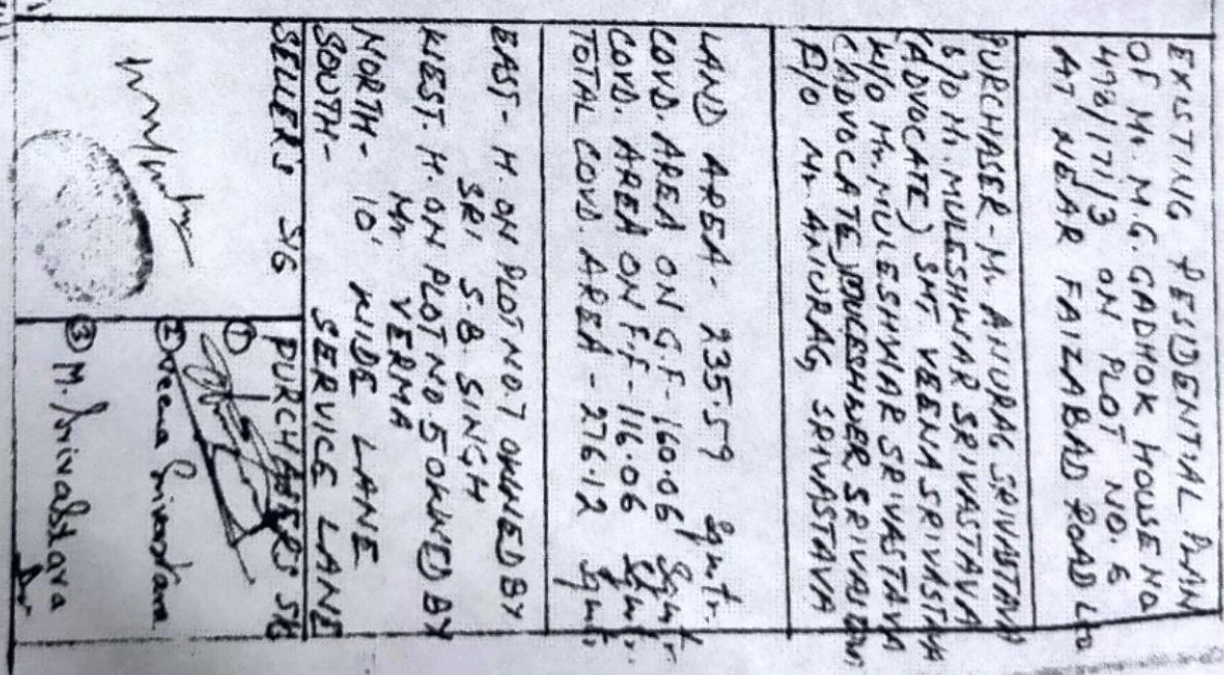 EXISTING RESIDENTIAL PLAN
OF Mr. M.G. GADHOK HOUSE NO
498/171/3 ON PLOT NO. 6
AT. NEAR FAIZABAD ROAD LKO
PURCHASER - Mr. ANURAG SRIVASTAVA
S/O Mr. MULESHWAR SRIVASTAVA
(ADVOCATE) SMT. VEENA SRIVASTAVA
W/O Mr. MULESHWAR SRIVASTAVA
(ADVOCATE) MULESHWER SRIVASTAVA
F/O Mr ANURAG SRIVASTAVA
LAND AREA - 235.59 Sqmtr.
COVD. AREA ON G.F - 160.06 Sqmtr
COVD. AREA ON F.F - 116.06 Sqmtr.
TOTAL COVD. AREA - 276.12 Sqmtr
EAST - H. ON PLOT NO.7 OWNED BY
SRI. S.B. SINGH
WEST. H. ON PLOT NO. 5 OWNED BY
Mr VERMA
NORTH - 10' WIDE LANE
SOUTH - SERVICE LANE
SELLER'S SIG
PURCHASERS SIG
①
② Veena Srivastava
③ M. Srivastava